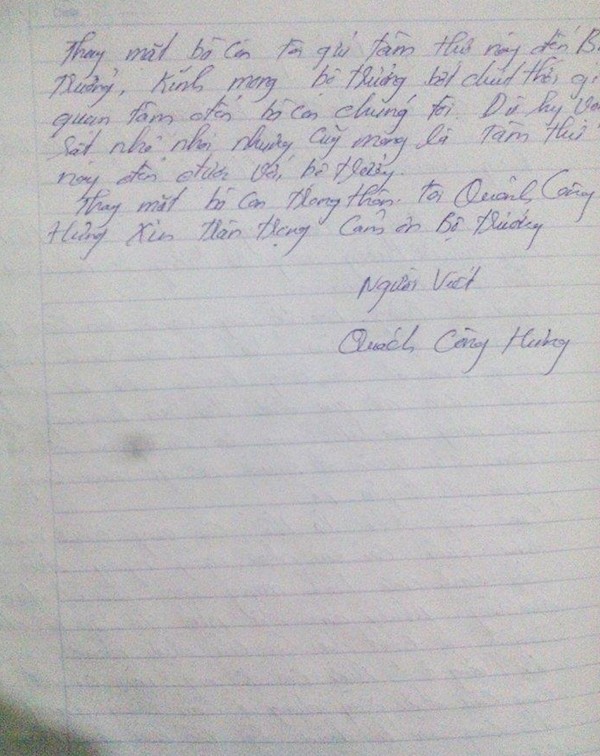 Thay mặt bà con tôi gửi tâm thư này đến B
Trưởng, Kính mong bộ trưởng bớt chút thời gi
quan tâm đến bà con chúng tôi. Dù hy vọ
rất nhỏ nhoi nhưng cũng mong là tâm thư
này đến được với bộ trưởng.
Thay mặt bà con trong thôn. Tôi Quách Công
Hưng Xin trân trọng Cảm ơn Bộ trưởng
Người Viết
Quách Công Hưng